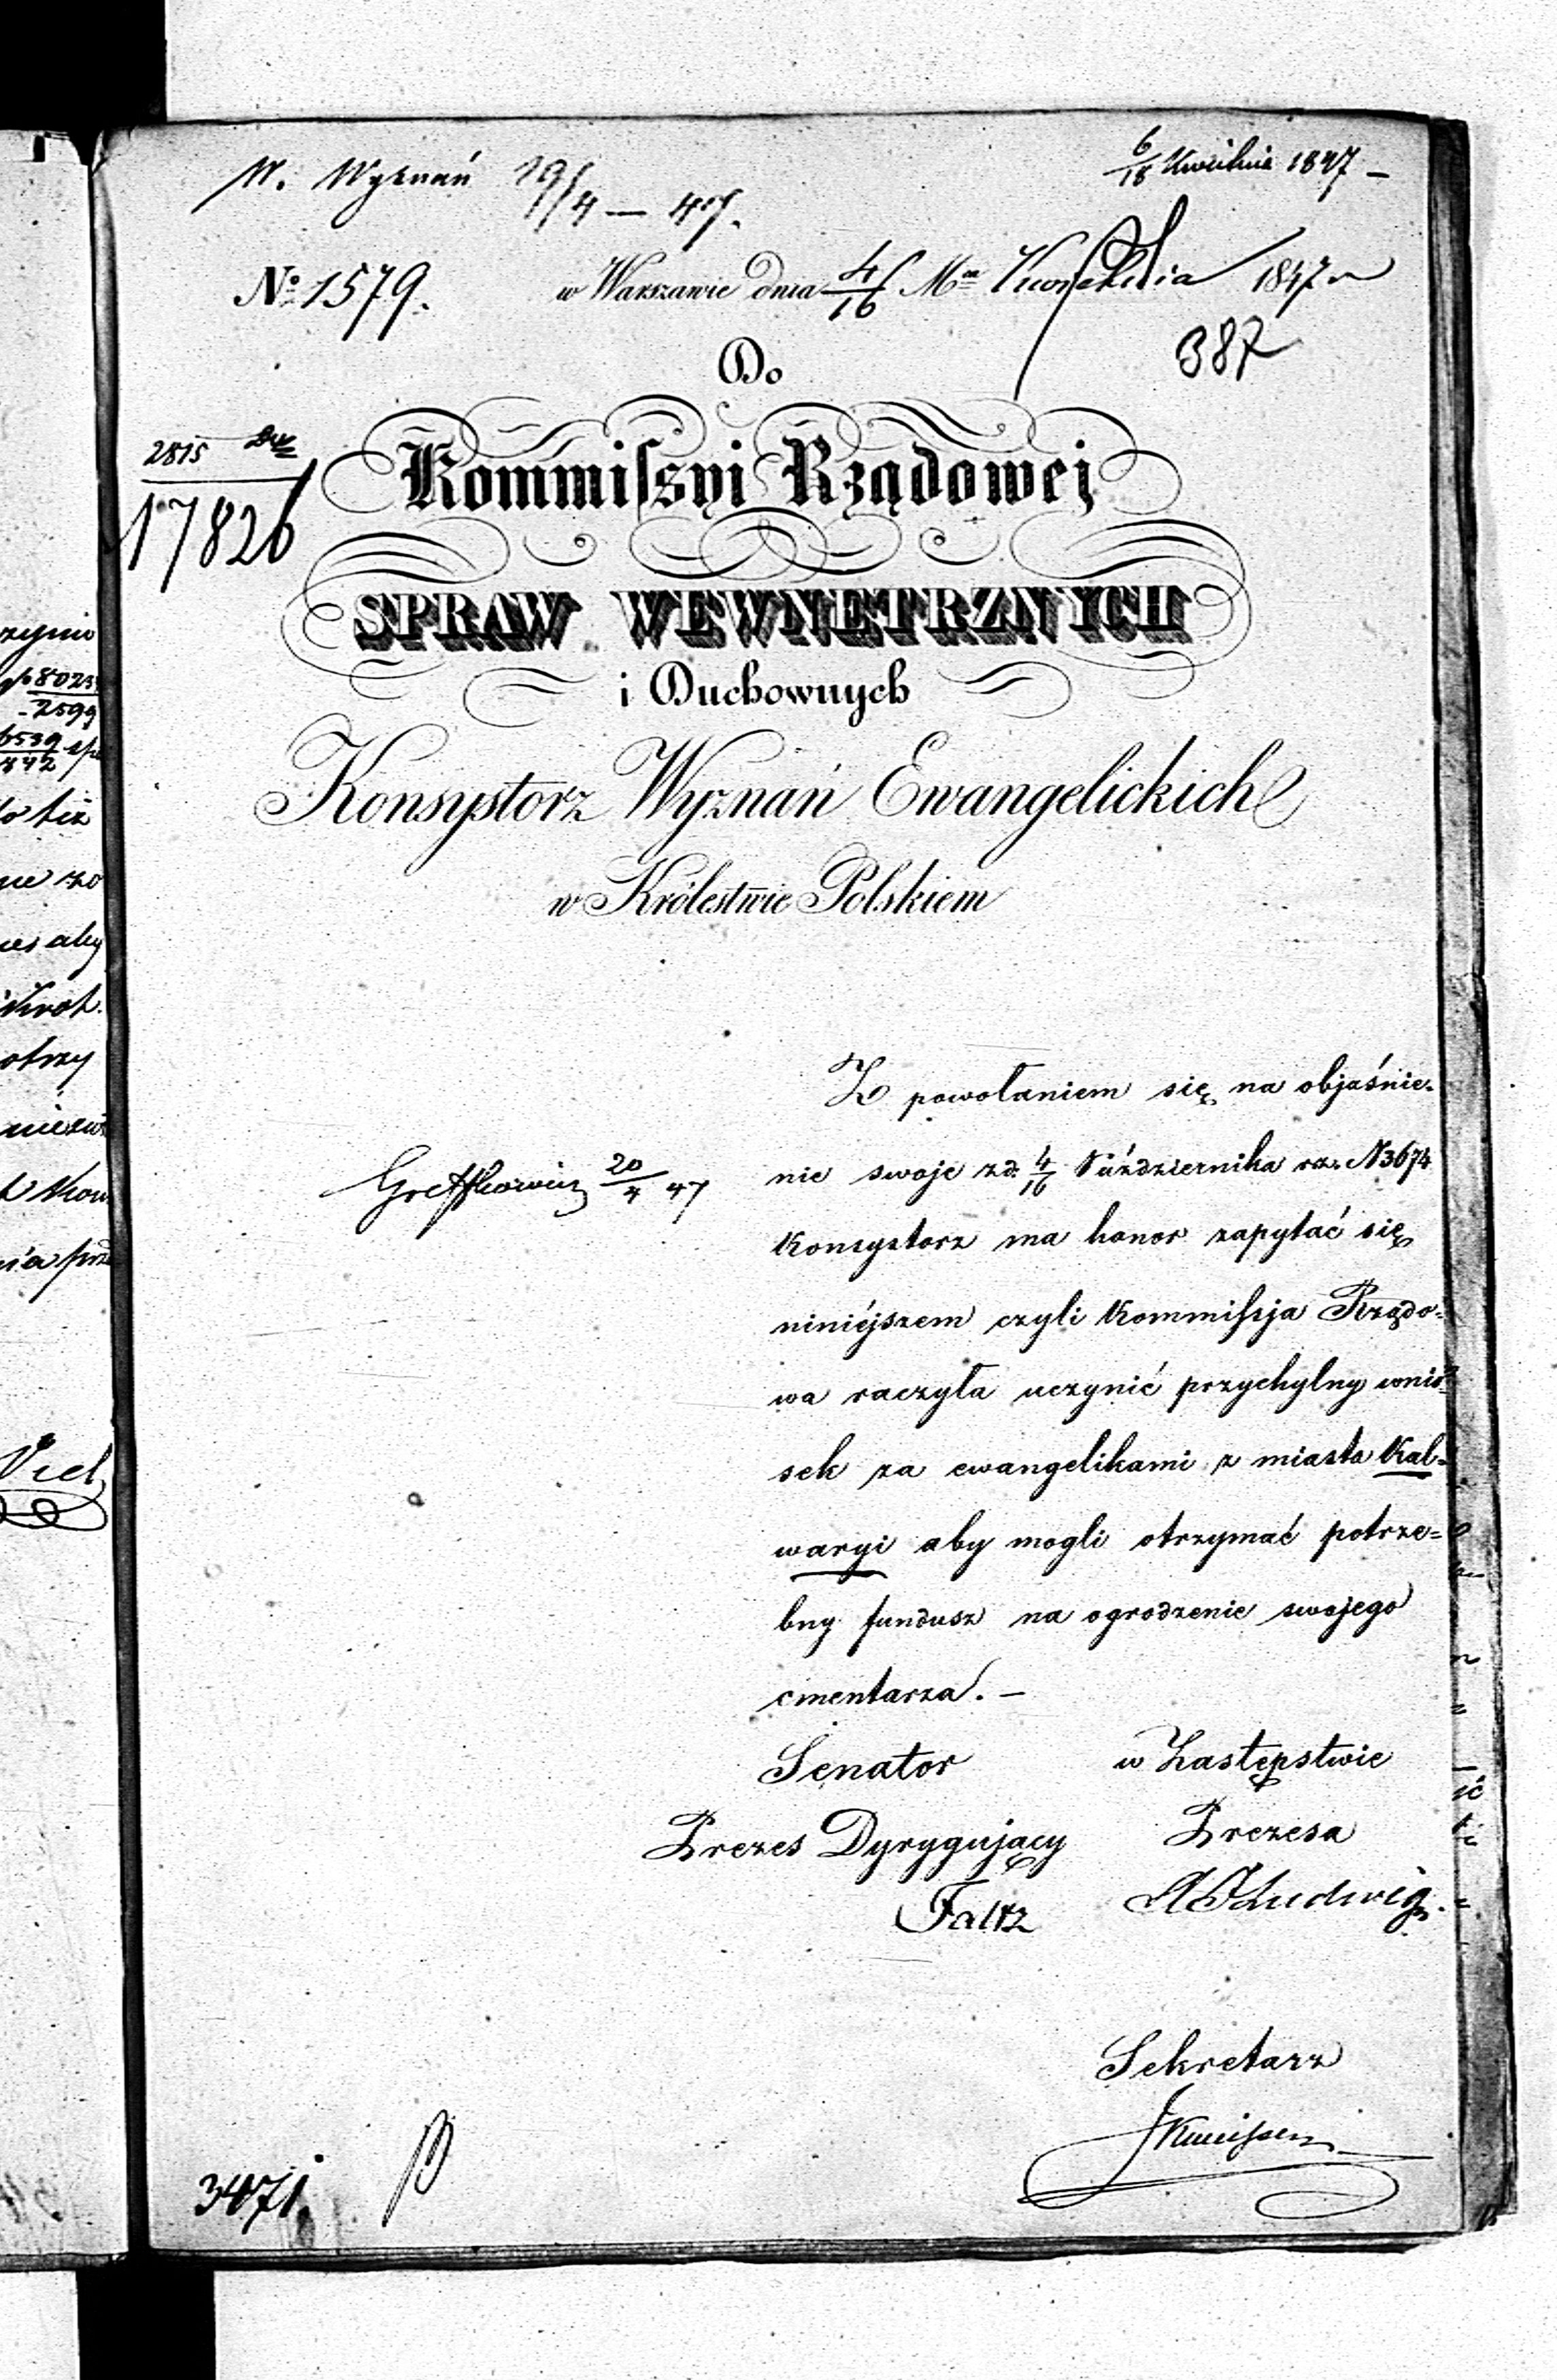 W. Wyznań 19/4 — 47.
6/18 Kwietnia 1847 —
No 1579.
w Warszawie dnia 4/16 Mca Kwietnia 1847
387
Do
2815
17826
Kommissyi Rządowej
SPRAW WEWNĘTRZNYCH
i Duchownych
Konsystorz Wyznań Ewangelickich
w Królestwie Polskiem
Z powołaniem się na objaśnie-
nie swoje z d. 4/16 Października r.z. N 3674
Konsystorz ma honor zapytać się
niniéjszem czyli Kommissja Rządo-
wa raczyła uczynić przychylny wnio-
sek za ewangelikami z miasta Kal-
waryi aby mogli otrzymać potrze=
bny fundusz na ogrodzenie swojego
cmentarza. —
20/4 47
Senator
w Zastępstwie
Prezes Dyrygujący
Prezesa
Faltz
Ludwig.
Sekretarz
3471.
zynio
8023
2599
6539
442
aby
otrzy